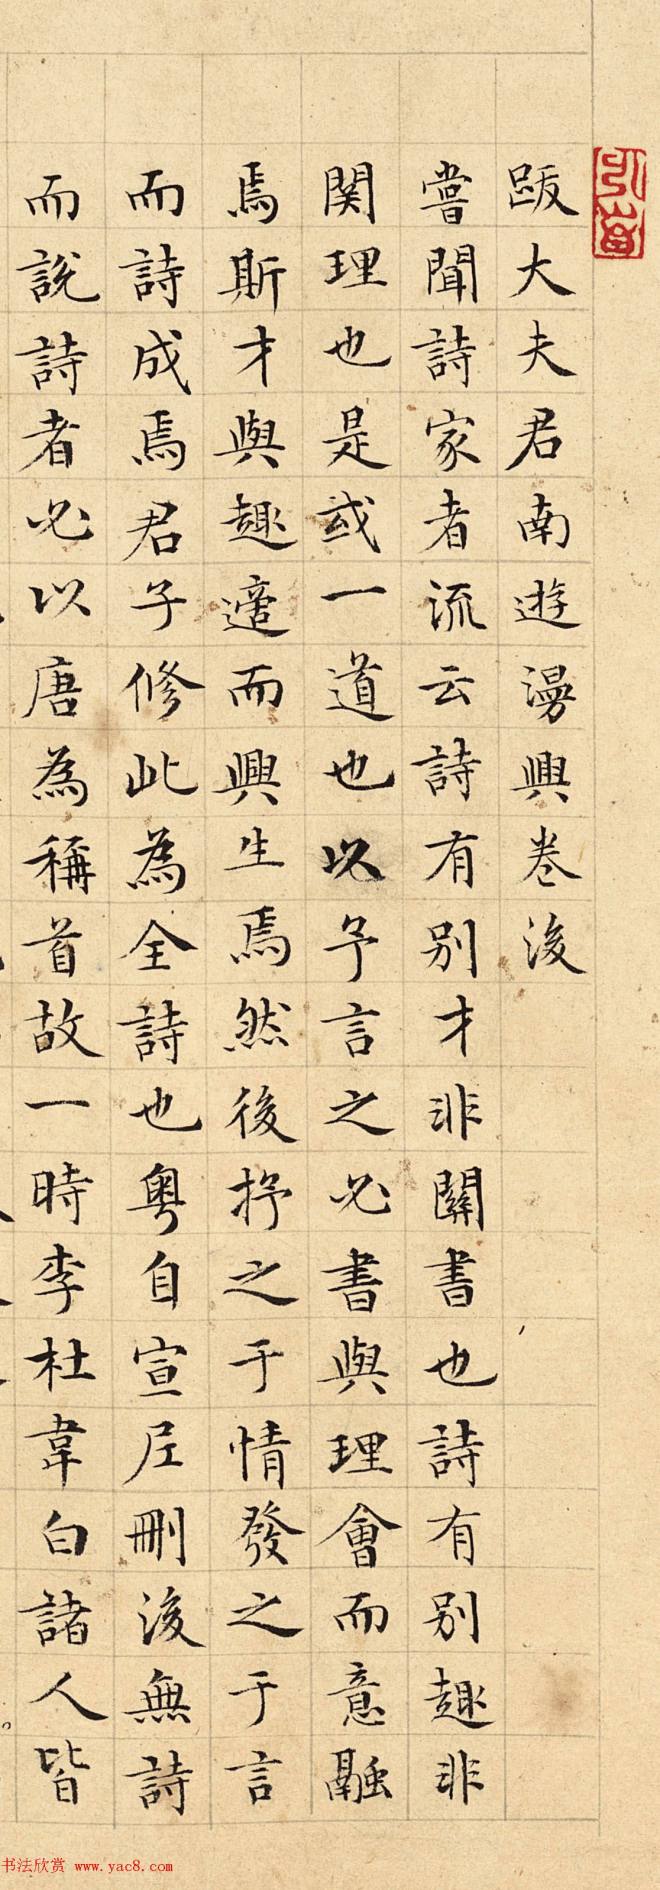 跋大夫君南遊漫興卷後
嘗聞詩家者流云詩有別才非關書也詩有別趣非
関理也是或一道也以予言之必書與理會而意融
焉斯才與趣適而興生焉然後抒之于情發之于言
而詩成焉君子修此為全詩也粤自宣尼刪後無詩
而說詩者必以唐為稱首故一時李杜韋白諸人皆
书法欣赏 www.yac8.com